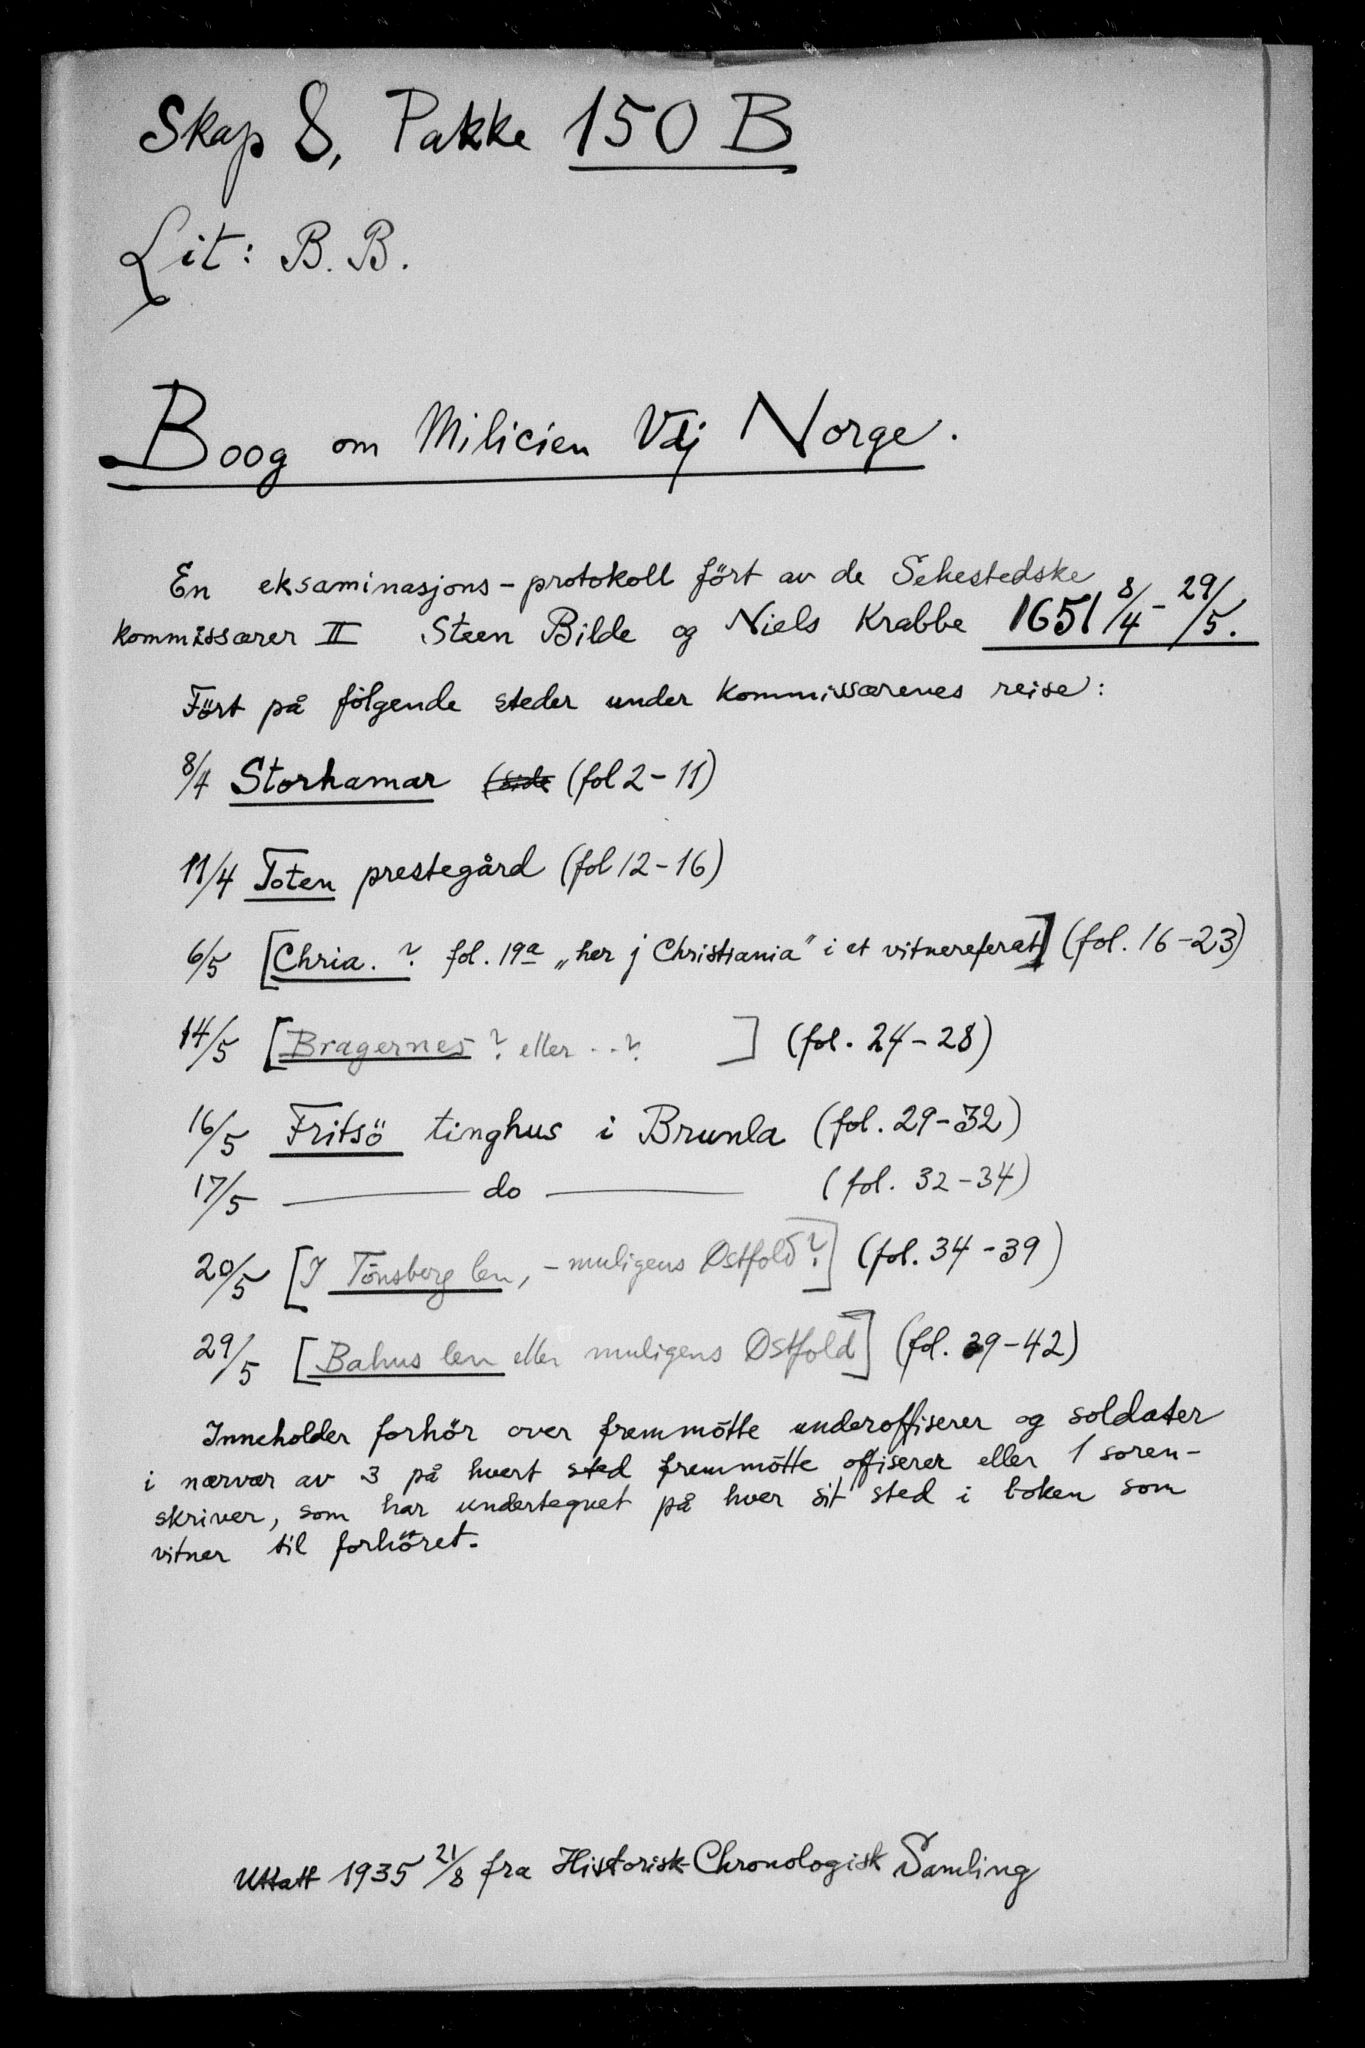 Skap 8, Pakke 150 B
Lit: B. B.
Boog om Milicien Udj Norge.
En eksaminasjons-protokoll fört av de Sehestedske
kommissærer II Steen Bilde og Niels Krabbe 1651 8/4 - 29/5.
Fört på fölgende steder under kommissærenes reise:
8/4 Storhamar (side (fol 2-11)
11/4 Toten prestegård (fol 12-16)
6/5 [Chria. ? fol. 19a „her j Christiania" i et vitnereferat] (fol. 16-23)
14/5 [Bragernes ? eller ..? ] (fol. 24-28)
16/5 Fritsö tinghus i Brunla (fol. 29-32)
17/5 — do — (fol. 32-34)
20/5 [I Tönsberg len, - muligens Østfold ?] (fol. 34-39)
29/5 [Bahus len eller muligens Østfold] (fol. 39-42)
Inneholder forhör over fremmötte underoffiserer og soldater
i nærvær av 3 på hvert sted fremmötte offiserer eller 1 soren-
skriver, som har undertegnet på hver sit sted i boken som
vitner til forhöret.
Uttatt 1935 21/8 fra Historisk-Chronologisk Samling